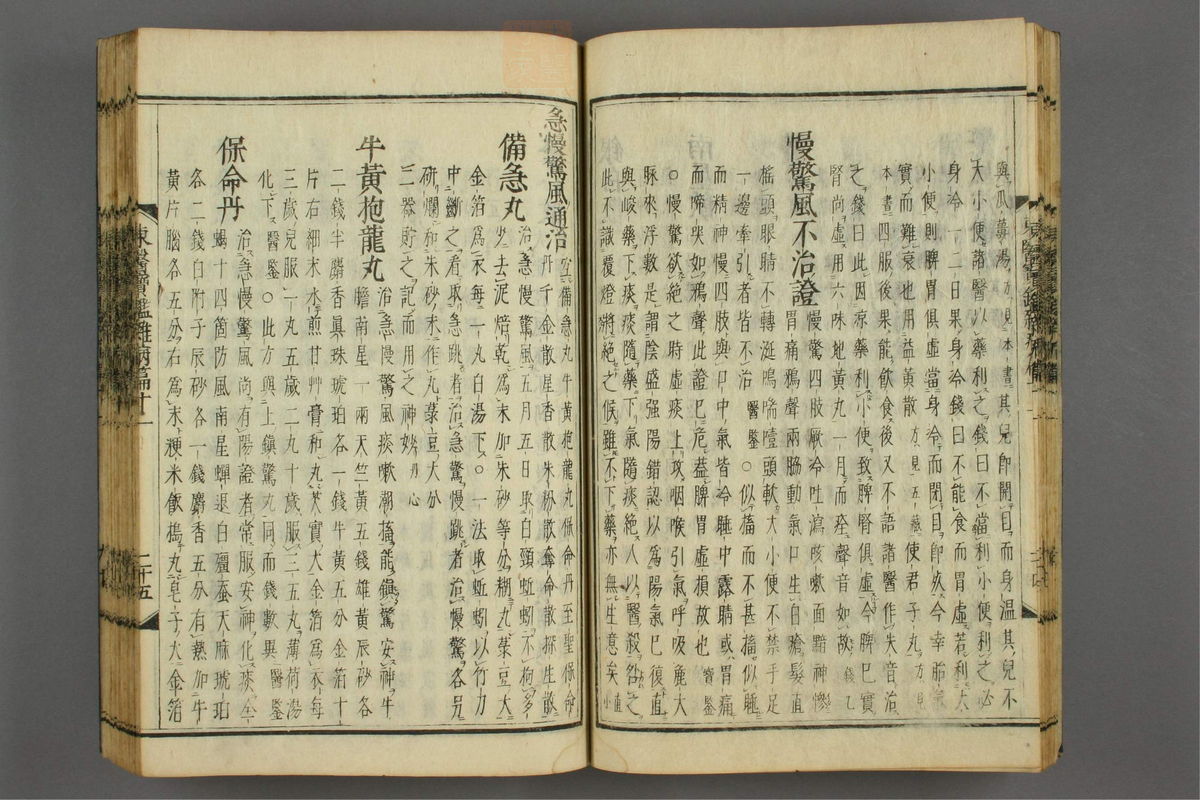 與瓜蔞湯方見本書其兒卽開目而身溫其兒不
大小便諸醫以藥利之錢曰不當利小便利之必
身冷一二日果身冷錢曰不能食而胃虛若利大
小便則脾胃俱虛當身冷而閉目卽死今幸胎氣
實而難衰也用益黃散方見五藏使君子丸方見
本書四服後果能飮食後又不語諸醫作失音治
之錢曰此因凉藥利小便致脾腎俱虛今脾已實
腎尚虛用六味地黃丸一月而痊聲音如故錢乙
慢驚風不治證
慢驚四肢厥冷吐瀉咳嗽面黯神慘
胃痛鴉聲兩脇動氣口生白瘡髮直
搖頭眼睛不轉涎鳴喘噎頭軟大小便不禁手足
一邊牽引者皆不治醫鑒○似搐而不甚搐似睡
而精神慢四肢與口中氣皆冷睡中露睛或胃痛
而啼哭如鴉聲此證已危蓋脾胃虛損故也寶鑒
○慢驚欲絶之時虛痰上攻咽喉引氣呼吸麄大
脉來浮數是謂陰盛强陽錯認以爲陽氣已復直
與峻藥下痰痰隨藥下氣隨痰絶人以醫殺咎之
此不識覆燈將絶之候雖不下藥亦無生意矣直小
急慢驚風通治
宜備急丸牛黃抱龍丸保命丹至聖保命
丹千金散星香散朱粉散奪命散探生散
備急丸
治急慢驚風五月五日取白頸蚯蚓不拘多
少去泥焙乾爲末加朱砂等分糊丸菉豆大
金箔爲衣每一丸白湯下○一法取蚯蚓以竹刀
中斷之看取急跳者治急驚慢跳者治慢驚各另
硏爛和朱砂末作丸菉豆大分
二器貯之記而用之神妙丹心
牛黃抱龍丸
治急慢驚風痰嗽潮搐能鎭驚安神牛
膽南星一兩天竺黃五錢雄黃辰砂各
二錢半麝香眞珠琥珀各一錢牛黃五分金箔十
片右細末水煎甘艸膏和丸芡實大金箔爲衣每
三歲兒服一丸五歲二丸十歲服三五丸薄荷湯
化下醫鑒○此方與上鎭驚丸同而錢數異醫鑒
保命丹
治急慢驚風尚有陽證者常服安神化痰全
蝎十四箇防風南星蟬退白殭蚕天麻琥珀
各二錢白附子辰砂各一錢麝香五分有熱加牛
黃片腦各五分右爲末粳米飯搗丸皂子大金箔
東醫寶鑑雜病篇十一
二十五